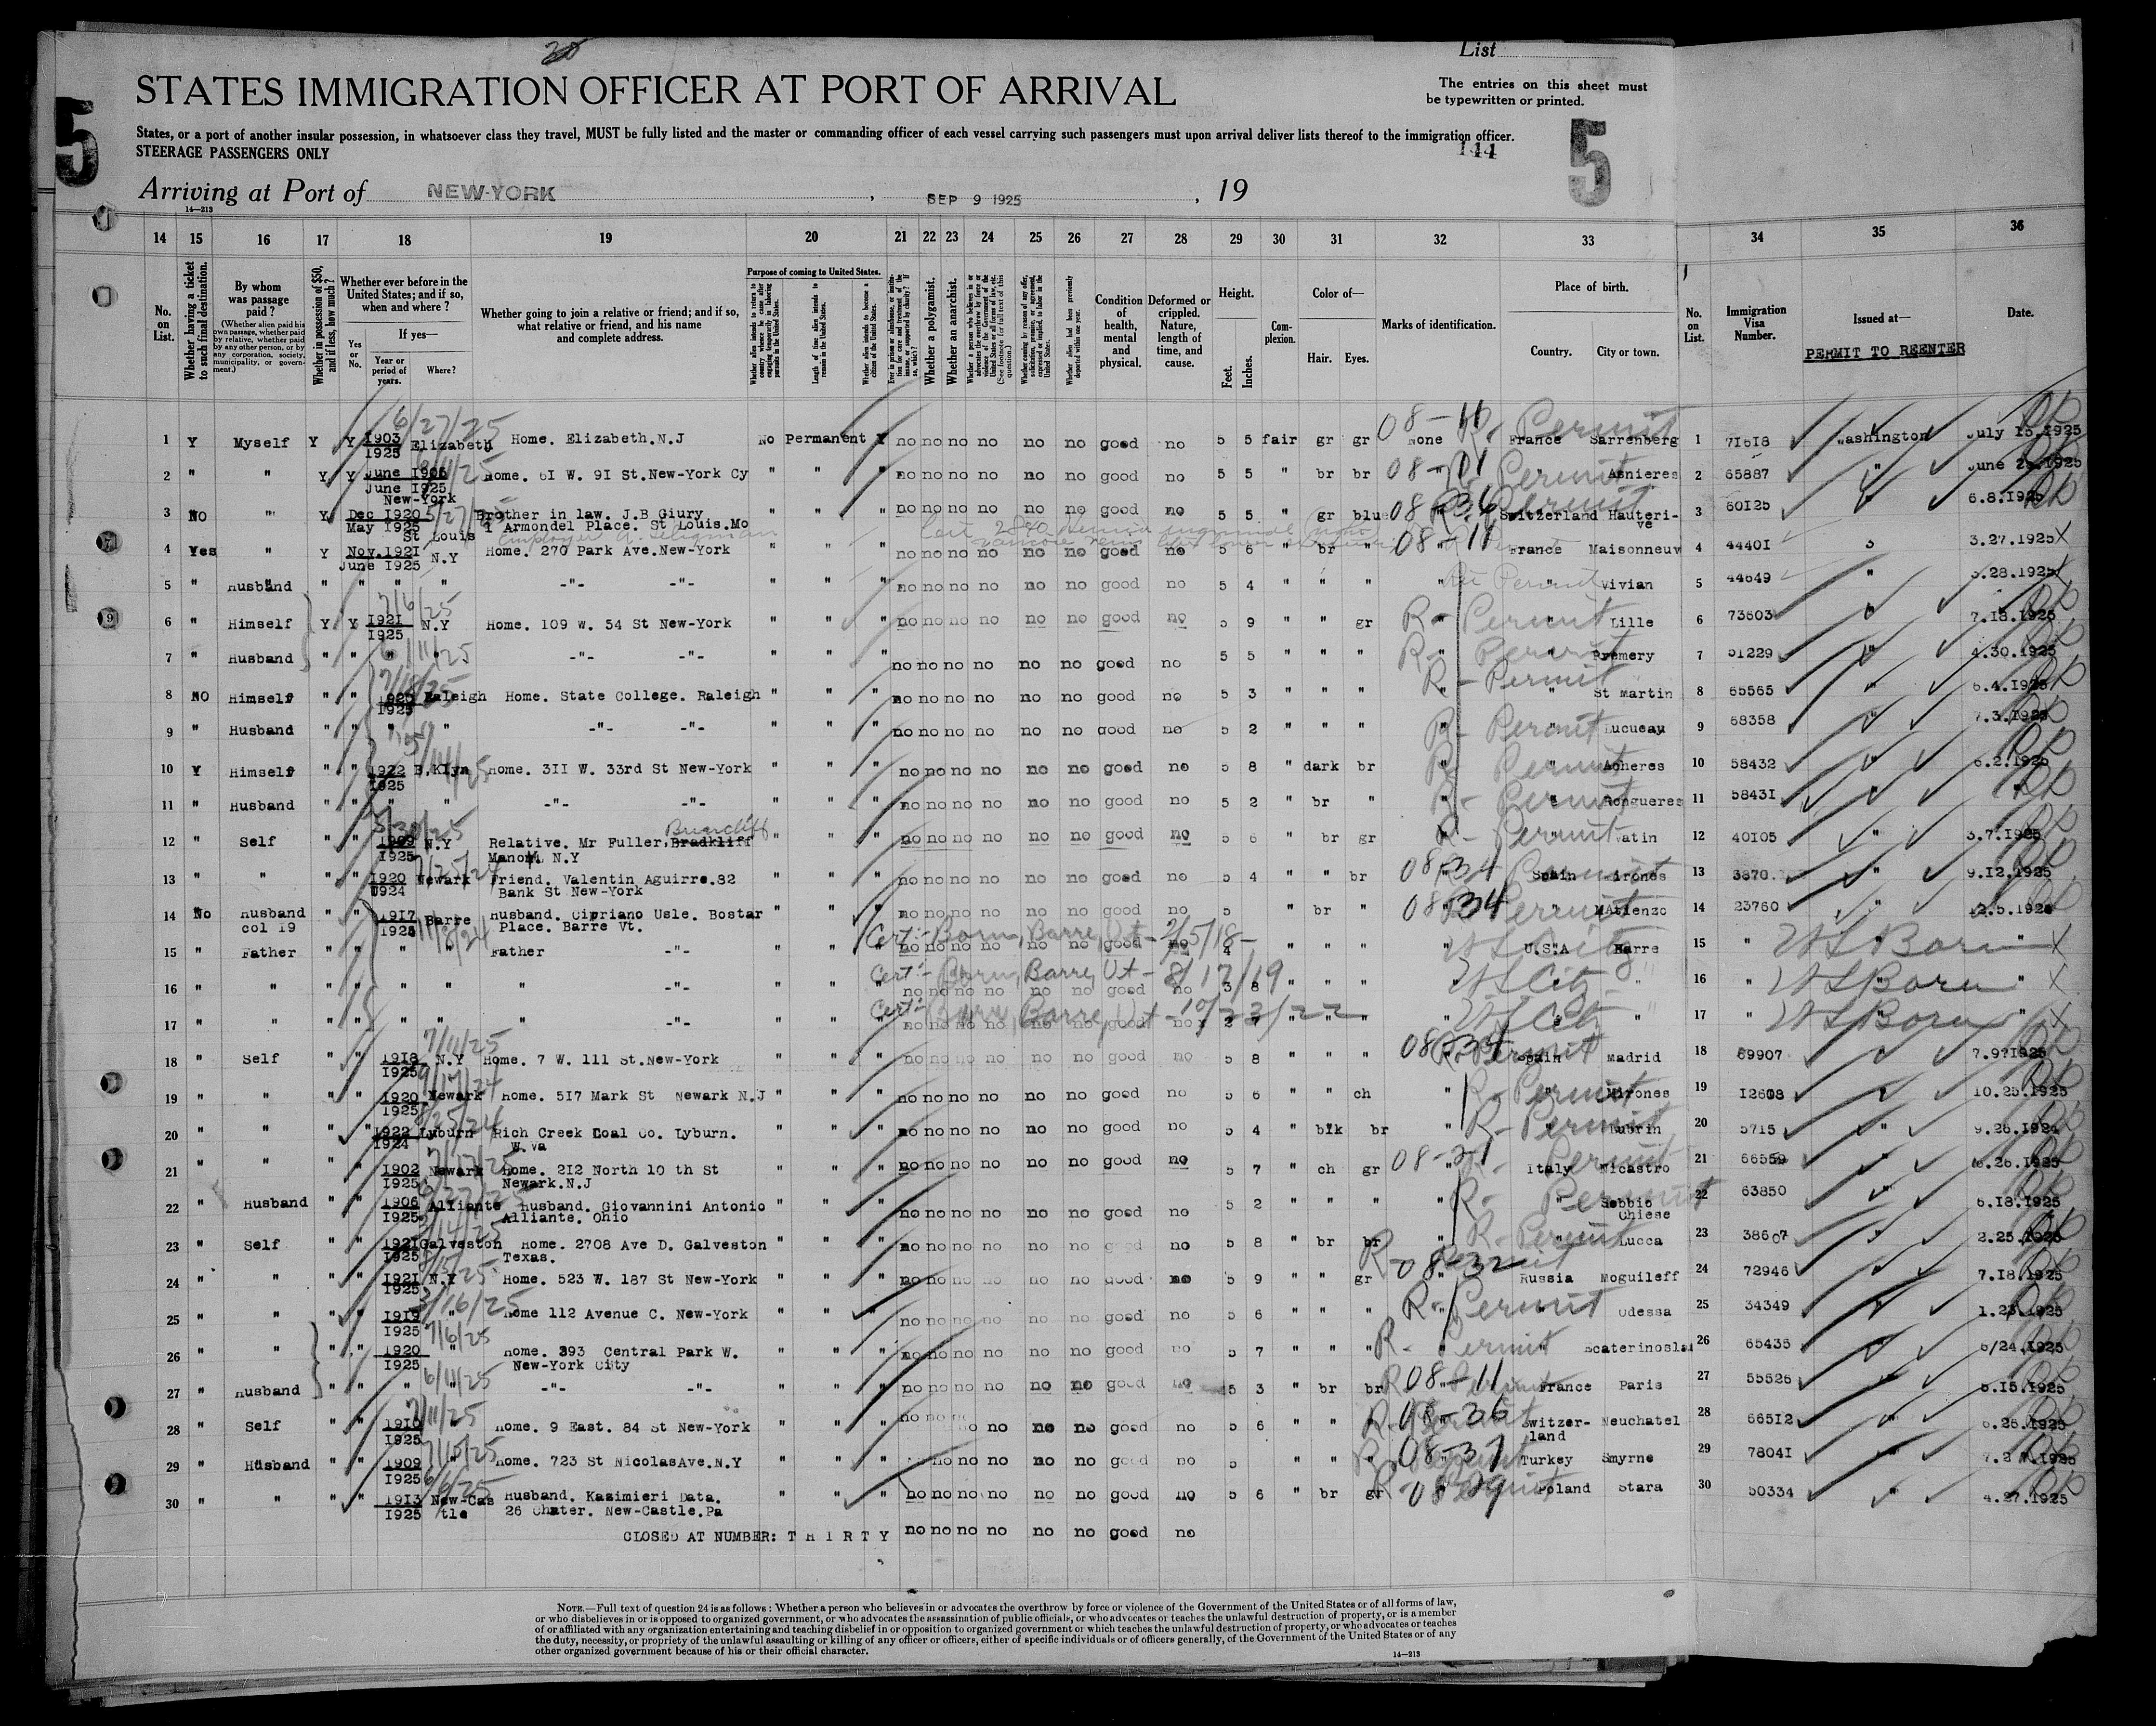 20
List
STATES IMMIGRATION OFFICER AT PORT OF ARRIVAL
The entries on this sheet must
be typewritten or printed.
5
5
States, or a port of another insular possession, in whatsoever class they travel, MUST be fully listed and the master or commanding officer of each vessel carrying such passengers must upon arrival deliver lists thereof to the immigration officer.
STEERAGE PASSENGERS ONLY
144
Arriving at Port of NEW-YORK , SEP 9 1925 , 19
14—213
14 15 16 17 18 19 20 21 22 23 24 25 26 27 28 29 30 31 32 33 34 35 36
No. on List.
Whether having a ticket to such final destination.
By whom was passage paid?
(Whether alien paid his own passage, whether paid by relative, whether paid by any other person, or by any corporation, society, municipality, or government.)
Whether in possession of $50, and if less, how much?
Whether ever before in the United States; and if so, when and where?
Yes or No.
If yes—
Year or period of years.
Where?
Whether going to join a relative or friend; and if so, what relative or friend, and his name and complete address.
Purpose of coming to United States.
Length of time alien intends to remain in the United States.
Whether alien intends to become a citizen of the United States.
Whether a polygamist.
Whether an anarchist.
Condition of health, mental and physical.
Deformed or crippled. Nature, length of time, and cause.
Height.
Feet. Inches.
Complexion.
Color of—
Hair. Eyes.
Marks of identification.
Place of birth.
Country. City or town.
No. on List.
Immigration Visa Number.
Issued at—
PERMIT TO REENTER
Date.
6/27/25
1 Y Myself Y Y 1903 1925 Elizabeth Home. Elizabeth.N.J No Permanent Y no no no no no no good no 5 5 fair gr gr 08-11 None R- Permit France Sarrenberg 1 71618 Washington July 15.1925
2 " " Y Y June 1906 June 1925 New-York Home. 61 W. 91 St.New-York Cy " " " no no no no no no good no 5 5 " br br Permit Asnieres 2 65887 "
3 NO " Y Dec 1920 May 1925 St Louis Brother in law. J.B Giury 1 Armondel Place. St Louis.Mo " " " no no no no no no good no 5 5 " gr blue 08-36 Switzerland Hauterive 3 60125 6.8.1925
4 Yes " Y Nov.1921 June 1925 N.Y Home. 270 Park Ave.New-York " " " no no no no no no good no 5 6 " br " 08-11 France Maisonneuv 4 44401 3.27.1925 X
5 " Husband " " " " -"- -"- " " " no no no no no no good no 5 4 " " " " Permit Vivian 5 44649 " 3.28.1925 X
7/6/25
6 " Himself Y Y 1921 1925 N.Y Home. 109 W. 54 St New-York " " " no no no no no no good no 5 9 " " gr R- Permit Lille 6 73603 " 7.18.1925
7 " Husband " " " -"- -"- " " " no no no no no no good no 5 5 " " " R- Permit 7 51229 " 4.30.1925
8 NO Himself " " 1925 Raleigh Home. State College. Raleigh " " " no no no no no no good no 5 3 " " " R- Permit St Martin 8 65565 " 6.4.1925
9 " Husband " " " " -"- -"- " " " no no no no no no good no 5 2 " " " R- Permit Lucueau 9 68358 " 7.3.1925
10 Y Himself " " 1922 1925 B.Klyn Home. 311 W. 33rd St New-York " " " no no no no no no good no 5 8 " dark br Permit Acheres 10 58432 " 6.2.1925
11 " Husband " " " " -"- -"- " " " no no no no no no good no 5 2 " br " Permit Rongueres 11 58431 "
12 " Self " " 1909 1925 N.Y Relative. Mr Fuller, Bradkliff Briarcliff Manor. N.Y " " " no no no no no no good no 5 6 " br gr R- Permit Vatin 12 40105 " 3.7.1925
13 " " " " 1920 1924 Newark Friend. Valentin Aguirre.82 Bank St New-York " " " no no no no no no good no 5 4 " " br 08-34 Spain Mirones 13 3870 " 9.12.1925
14 No Husband col 19 " " 1917 1925 Barre Husband. Cipriano Usle. Bostar Place. Barre Vt. " " " no no no no no no good no 5 " br " 08-34 Permit Matienzo 14 23760 "
Cert:- Born, Barre, Vt - 2/5/18
15 " Father " " " Father -"- no no no no no no good no 4 " " " " US City U.S.A Barre 15 " US Born " X
Cert:- Born, Barre, Vt - 8/17/19
16 " " " " " " " -"- no no no no no no good no 3 8 " " " " US City " 16 " US Born " X
Cert:- Born, Barre, Vt - 10/23/22
17 " " " " " " " -"- no no no no no no good no 2 7 " " " US City " 17 " US Born " X
7/11/25
18 " Self " " 1918 1925 N.Y Home. 7 W. 111 St.New-York " " " no no no no no no good no 5 8 " " " 08-34 Permit Spain Madrid 18 69907 7.9.1925
9/17/24
19 " " " " 1920 1925 Newark Home. 517 Mark St Newark N.J " " " no no no no no no good no 5 6 " " ch " R- Permit Mirones 19 12608 10.25.1925
8/25/24
20 " " " 1922 1924 Lyburn Rich Creek Coal Co. Lyburn. W.Va " " " no no no no no no good no 5 4 " blk br " R- Permit Rubrin 20 5715 " 9.26.1924
21 " " " 1902 1925 Newark Home. 212 North 10 th St Newark.N.J " " " no no no no no no good no 5 7 " ch gr 08-21 Permit Italy Nicastro 21 66559 "
22 " Husband " " 1906 1925 Alliante Husband. Giovannini Antonio Alliante. Ohio " " " no no no no no no good no 5 2 " " " " R- Permit Sobbio Chiese 22 63850 " 6.18.1925
23 " Self " " 1921 1925 Galveston Home. 2708 Ave D. Galveston Texas. " " " no no no no no no good no 5 8 " br br R- Permit Lucca 23 38607 2.25.1925
24 " " " " 1921 1925 N.Y Home. 523 W. 187 St New-York " " " no no no no no no good no 5 9 " " gr 08-32 Russia Moguileff 24 72946 " 7.18.1925
3/16/25
25 " " " " 1919 1925 " Home 112 Avenue C. New-York " " " no no no no no no good no 5 6 " " " R- Permit Odessa 25 34349 " 1.23.1925
7/6/25
26 " " " " 1920 1925 " Home. 393 Central Park W. New-York City " " " no no no no no no good no 5 7 " " " R- Permit " 26 65435 " 6/24.1925
6/11/25
27 " Husband " " " " -"- -"- " " " no no no no no no good no 5 3 " br br 08-11 France Paris 27 55526 " 5.15.1925
7/11/25
28 " Self " " 1910 1925 " Home. 9 East. 84 St New-York " " " no no no no no no good no 5 6 " " " 08-36 Switzerland Neuchatel 28 66512 " 6.26.1925
7/15/25
29 " Husband " " 1909 1925 " Home. 723 St NicolasAve.N.Y " " " no no no no no no good no 5 " " " 08-37 Turkey Smyrne 29 78041 " 7.27.1925
6/6/25
30 " " " " 1913 1925 New-Castle Husband. Kazimieri Data. 26 Chater. New-Castle.Pa " " " no no no no no no good no 5 6 " br gr 08-29 Poland Stara 30 50334 " 4.27.1925
CLOSED AT NUMBER: T H I R T Y no no no no no no good no
NOTE.—Full text of question 24 is as follows: Whether a person who believes in or advocates the overthrow by force or violence of the Government of the United States or of all forms of law,
or who disbelieves in or is opposed to organized government, or who advocates the assassination of public officials, or who advocates or teaches the unlawful destruction of property, or is a member
of or affiliated with any organization entertaining and teaching disbelief in or opposition to organized government or which teaches the unlawful destruction of property, or who advocates or teaches
the duty, necessity, or propriety of the unlawful assaulting or killing of any officer or officers, either of specific individuals or of officers generally, of the Government of the United States or of any
other organized government because of his or their official character.
14—213